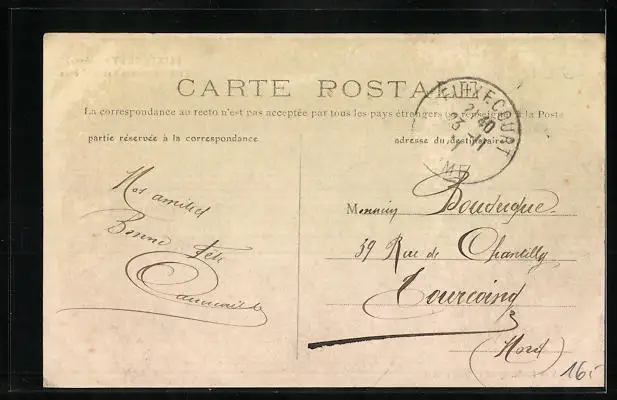 CARTE POSTALE
La correspondance au recto n'est pas acceptée par tous les pays étrangers (se renseigner à la Poste
partie réservée à la correspondance
adresse du destinataire
23 -11
Nos amitiés
Bonne Fête
Monsieur
39 Rue de Chantilly
Tourcoing
(Nord)
16.-